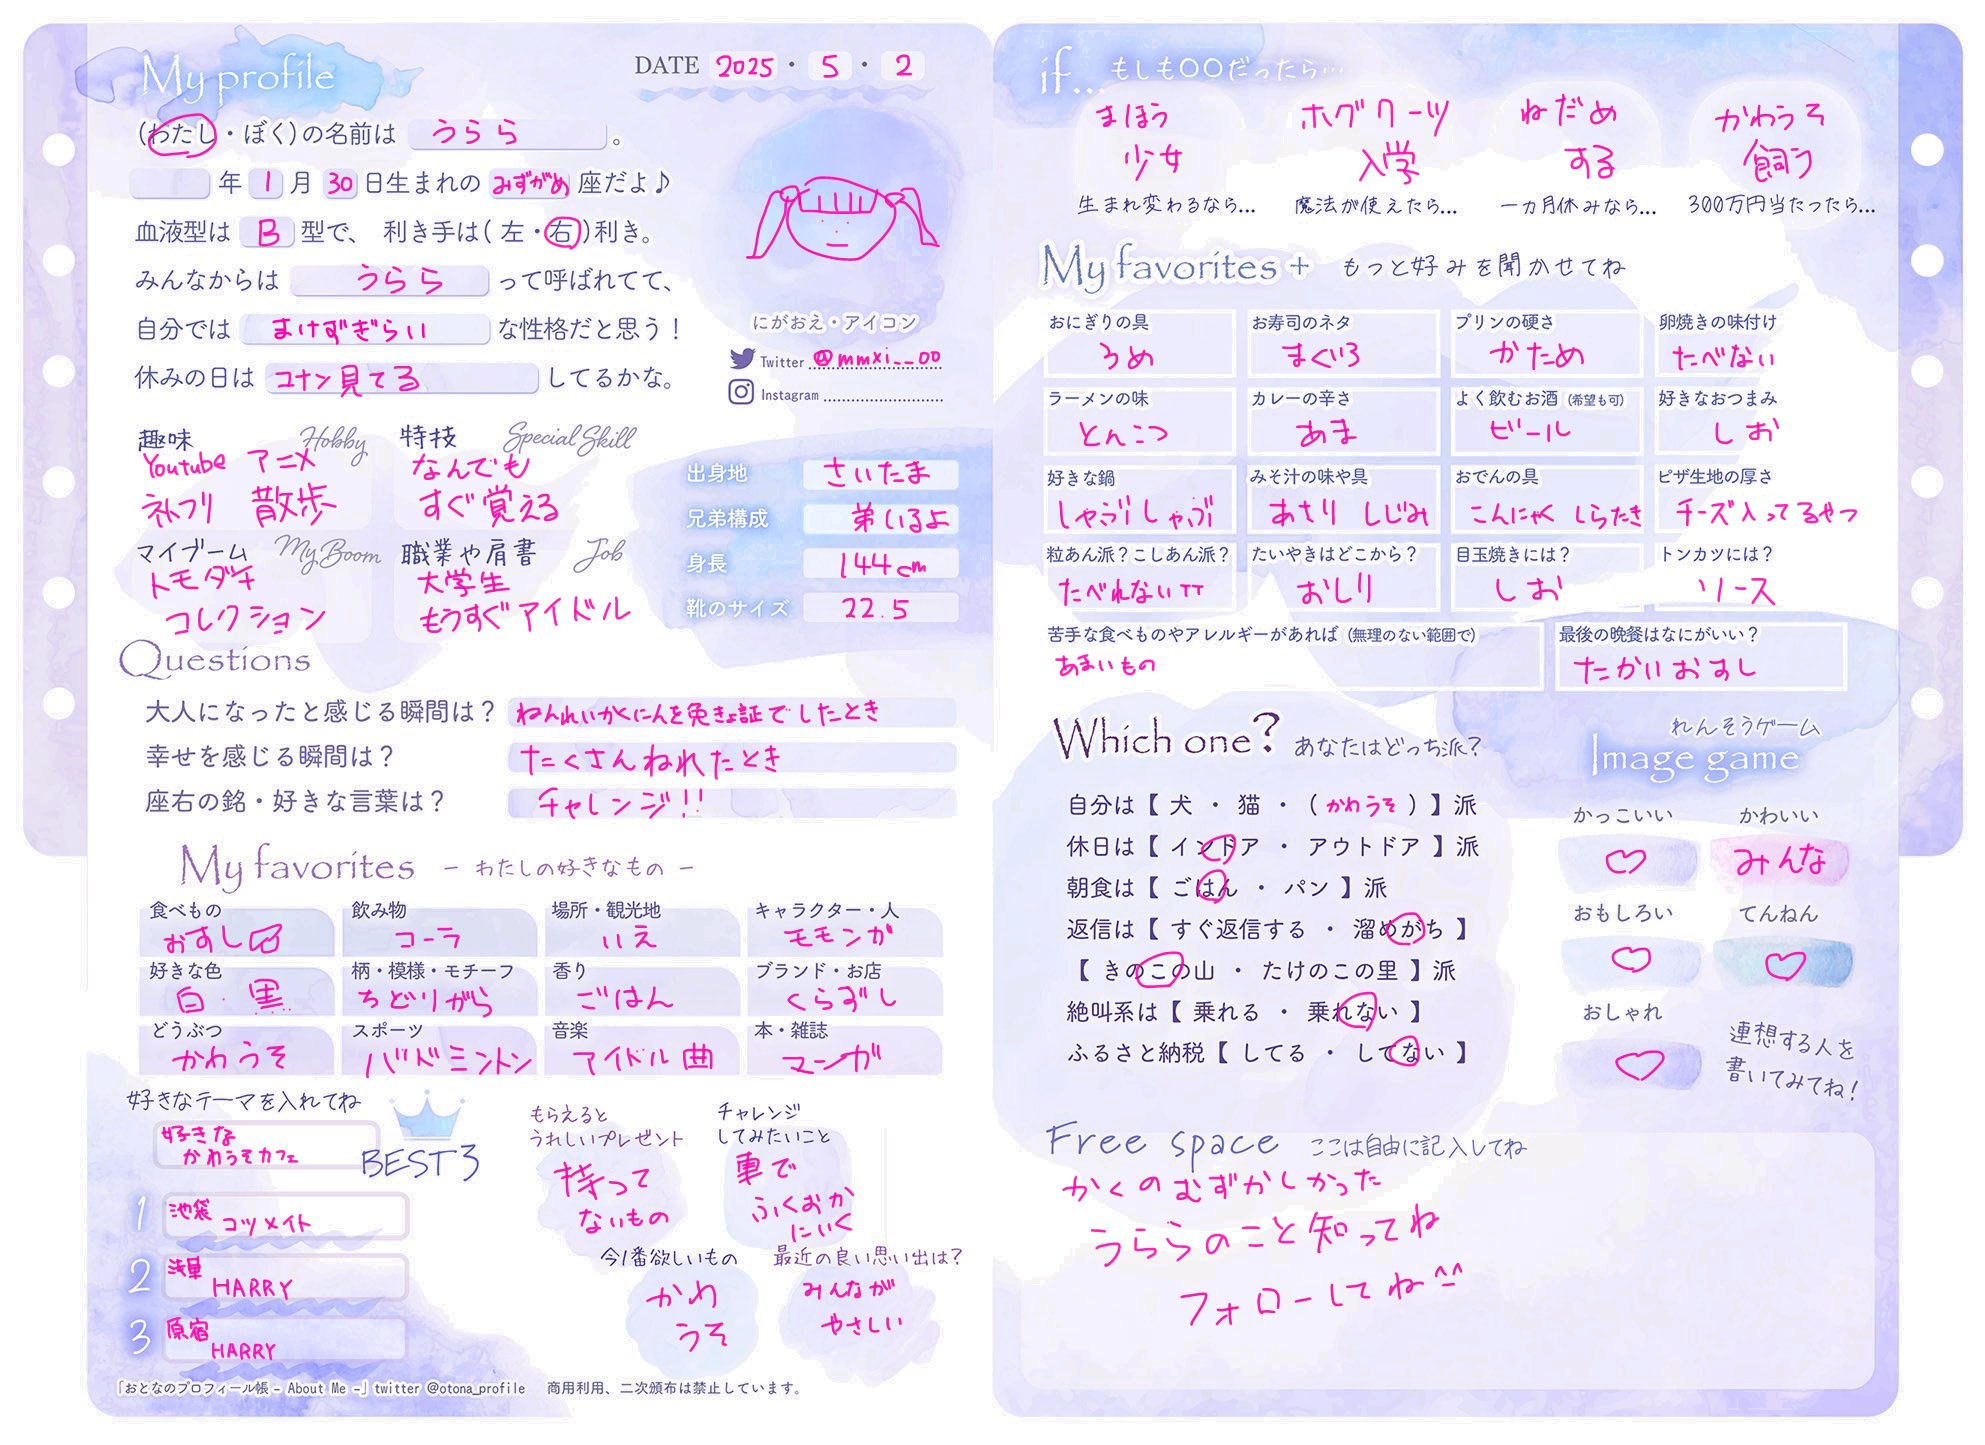 My profile
DATE 2025・5・2
(わたし・ぼく)の名前は うらら 。
年 1 月 30 日生まれの みずがめ 座だよ♪
血液型は B 型で、 利き手は( 左・右 )利き。
みんなからは うらら って呼ばれてて、
自分では まけずぎらい な性格だと思う!
休みの日は コナン見てる してるかな。
にがおえ・アイコン
Twitter @mmxi__00
Instagram
趣味 Hobby
Youtube アニメ
ネトフリ 散歩
特技 Special Skill
なんでも
すぐ覚える
マイブーム My Boom
トモダチ
コレクション
職業や肩書 Job
大学生
もうすぐアイドル
出身地 さいたま
兄弟構成 弟いるよ
身長 144cm
靴のサイズ 22.5
Questions
大人になったと感じる瞬間は? ねんれいかくにんを免きょ証でしたとき
幸せを感じる瞬間は? たくさんねれたとき
座右の銘・好きな言葉は? チャレンジ!!
My favorites – わたしの好きなもの –
食べもの おすし
飲み物 コーラ
場所・観光地 いえ
キャラクター・人 モモンガ
好きな色 白・黒
柄・模様・モチーフ ちどりがら
香り ごはん
ブランド・お店 くらずし
どうぶつ かわうそ
スポーツ バドミントン
音楽 アイドル曲
本・雑誌 マンガ
好きなテーマを入れてね
好きな
かわうそカフェ
BEST3
1 池袋 コツメイト
2 浅草 HARRY
3 原宿 HARRY
もらえると
うれしいプレゼント
持って
ないもの
チャレンジ
してみたいこと
車で
ふくおか
にいく
今1番欲しいもの
かわ
うそ
最近の良い思い出は?
みんなが
やさしい
「おとなのプロフィール帳 – About Me –」twitter @otona_profile 商用利用、二次頒布は禁止しています。
if... もしも〇〇だったら…
まほう
少女
生まれ変わるなら...
ホグワーツ
入学
魔法が使えたら...
ねだめ
する
一ヵ月休みなら...
かわうそ
飼う
300万円当たったら...
My favorites + もっと好みを聞かせてね
おにぎりの具 うめ
お寿司のネタ まぐろ
プリンの硬さ かため
卵焼きの味付け たべない
ラーメンの味 とんこつ
カレーの辛さ あま
よく飲むお酒 (希望も可) ビール
好きなおつまみ しお
好きな鍋 しゃぶしゃぶ
みそ汁の味や具 あさり しじみ
おでんの具 こんにゃく しらたき
ピザ生地の厚さ チーズ入ってるやつ
粒あん派?こしあん派? たべれないTT
たいやきはどこから? おしり
目玉焼きには? しお
トンカツには? ソース
苦手な食べものやアレルギーがあれば (無理のない範囲で)
あまいもの
最後の晩餐はなにがいい?
たかいおすし
Which one? あなたはどっち派?
自分は【 犬 ・ 猫 ・ ( かわうそ ) 】派
休日は【 インドア ・ アウトドア 】派
朝食は【 ごはん ・ パン 】派
返信は【 すぐ返信する ・ 溜めがち 】
【 きのこの山 ・ たけのこの里 】派
絶叫系は【 乗れる ・ 乗れない 】
ふるさと納税【 してる ・ してない 】
れんそうゲーム
Image game
かっこいい ♡
かわいい みんな
おもしろい ♡
てんねん ♡
おしゃれ ♡
連想する人を
書いてみてね!
Free space ここは自由に記入してね
かくのむずかしかった
うららのこと知ってね
フォローしてね^^